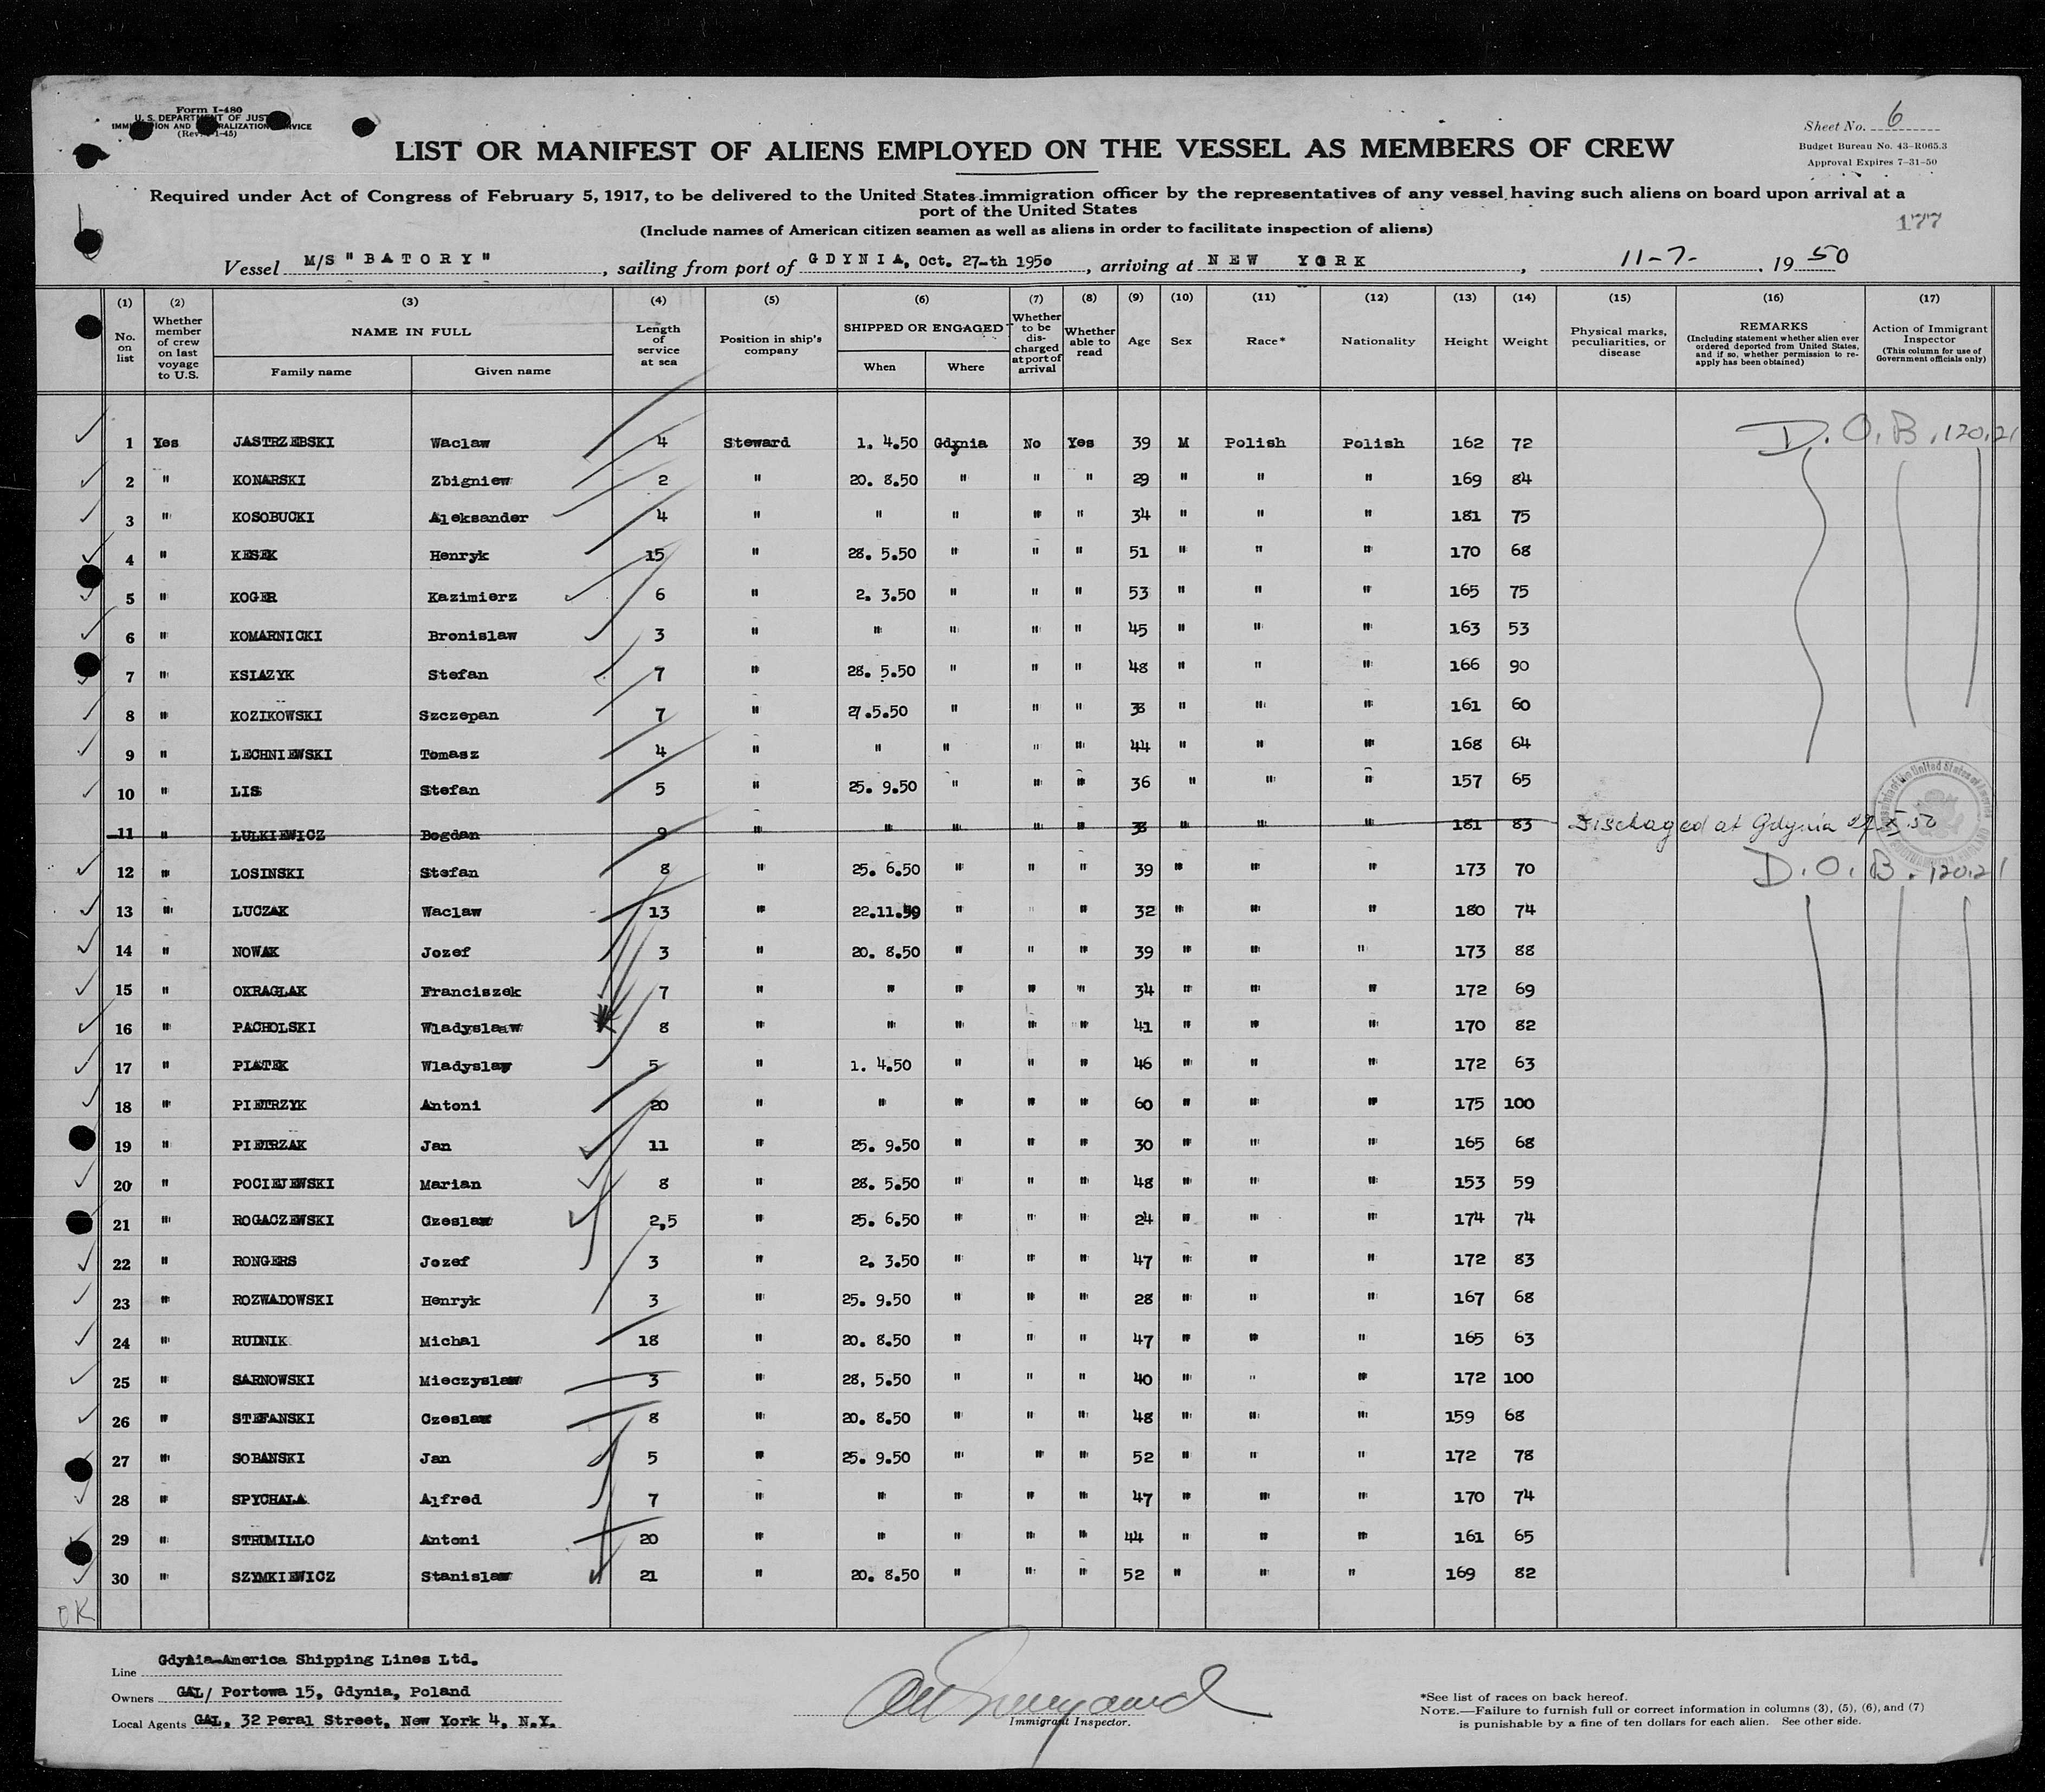 Form I-480
U. S. DEPARTMENT OF JUST
IMM ION AND RALIZATION SERVICE
(Rev. 1-45)
Sheet No. 6
Budget Bureau No. 43-R065.3
Approval Expires 7-31-50
LIST OR MANIFEST OF ALIENS EMPLOYED ON THE VESSEL AS MEMBERS OF CREW
Required under Act of Congress of February 5, 1917, to be delivered to the United States immigration officer by the representatives of any vessel having such aliens on board upon arrival at a
port of the United States
177
(Include names of American citizen seamen as well as aliens in order to facilitate inspection of aliens)
Vessel M/S "BATORY", sailing from port of GDYNIA, Oct. 27-th 1950, arriving at NEW YORK, 11-7-, 1950
(1) (2) (3) (4) (5) (6) (7) (8) (9) (10) (11) (12) (13) (14) (15) (16) (17)
No. on list
Whether member of crew on last voyage to U.S.
NAME IN FULL
Family name Given name
Length of service at sea
Position in ship's company
SHIPPED OR ENGAGED
When Where
Whether to be discharged at port of arrival
Whether able to read
Age
Sex
Race*
Nationality
Height
Weight
Physical marks, peculiarities, or disease
REMARKS
(Including statement whether alien ever ordered deported from United States, and if so, whether permission to re-apply has been obtained)
Action of Immigrant Inspector
(This column for use of Government officials only)
1 Yes JASTRZEBSKI Waclaw 4 Steward 1. 4.50 Gdynia No Yes 39 M Polish Polish 162 72 D.O.B. 120.21
2 " KONARSKI Zbigniew 2 " 20. 8.50 " " " 29 " " " 169 84
3 " KOSOBUCKI Aleksander 4 " " " " " 34 " " " 181 75
4 " KESEK Henryk 15 " 28. 5.50 " " " 51 " " " 170 68
5 " KOGER Kazimierz 6 " 2. 3.50 " " " 53 " " " 165 75
6 " KOMARNICKI Bronislaw 3 " " " " " 45 " " " 163 53
7 " KSIAZYK Stefan 7 " 28. 5.50 " " " 48 " " " 166 90
8 " KOZIKOWSKI Szczepan 7 " 27.5.50 " " " 38 " " " 161 60
9 " LECHNIEWSKI Tomasz 4 " " " " " 44 " " " 168 64
10 " LIS Stefan 5 " 25. 9.50 " " " 36 " " " 157 65
11 " LULKIEWICZ Bogdan 9 " " " " " 38 " " " 181 83 Dischaged at Gdynia 27.X.50
12 " LOSINSKI Stefan 8 " 25. 6.50 " " " 39 " " " 173 70 D.O.B. 120.21
13 " LUCZAK Waclaw 13 " 22.11.59 " " " 32 " " " 180 74
14 " NOWAK Jozef 3 " 20. 8.50 " " " 39 " " " 173 88
15 " OKRAGLAK Franciszek 7 " " " " " 34 " " " 172 69
16 " PACHOLSKI Wladyslaw 8 " " " " " 41 " " " 170 82
17 " PIATEK Wladyslaw 5 " 1. 4.50 " " " 46 " " " 172 63
18 " PIETRZYK Antoni 20 " " " " " 60 " " " 175 100
19 " PIETRZAK Jan 11 " 25. 9.50 " " " 30 " " " 165 68
20 " POCIEJEWSKI Marian 8 " 28. 5.50 " " " 48 " " " 153 59
21 " ROGACZEWSKI Czeslaw 2,5 " 25. 6.50 " " " 24 " " " 174 74
22 " RONGERS Jozef 3 " 2. 3.50 " " " 47 " " " 172 83
23 " ROZWADOWSKI Henryk 3 " 25. 9.50 " " " 28 " " " 167 68
24 " RUDNIK Michal 18 " 20. 8.50 " " " 47 " " " 165 63
25 " SARNOWSKI Mieczyslaw 3 " 28, 5.50 " " " 40 " " " 172 100
26 " STEFANSKI Czeslaw 8 " 20. 8.50 " " " 48 " " " 159 68
27 " SOBANSKI Jan 5 " 25. 9.50 " " " 52 " " " 172 78
28 " SPYCHALA Alfred 7 " " " " " 47 " " " 170 74
29 " STRUMILLO Antoni 20 " " " " " 44 " " " 161 65
30 " SZYMKIEWICZ Stanislaw 21 " 20. 8.50 " " " 52 " " " 169 82
OK
Line Gdynia-America Shipping Lines Ltd.
Owners GAL/ Portowa 15, Gdynia, Poland
Local Agents GAL, 32 Peral Street, New York 4, N.Y.
Immigrant Inspector.
*See list of races on back hereof.
NOTE.—Failure to furnish full or correct information in columns (3), (5), (6), and (7)
is punishable by a fine of ten dollars for each alien. See other side.